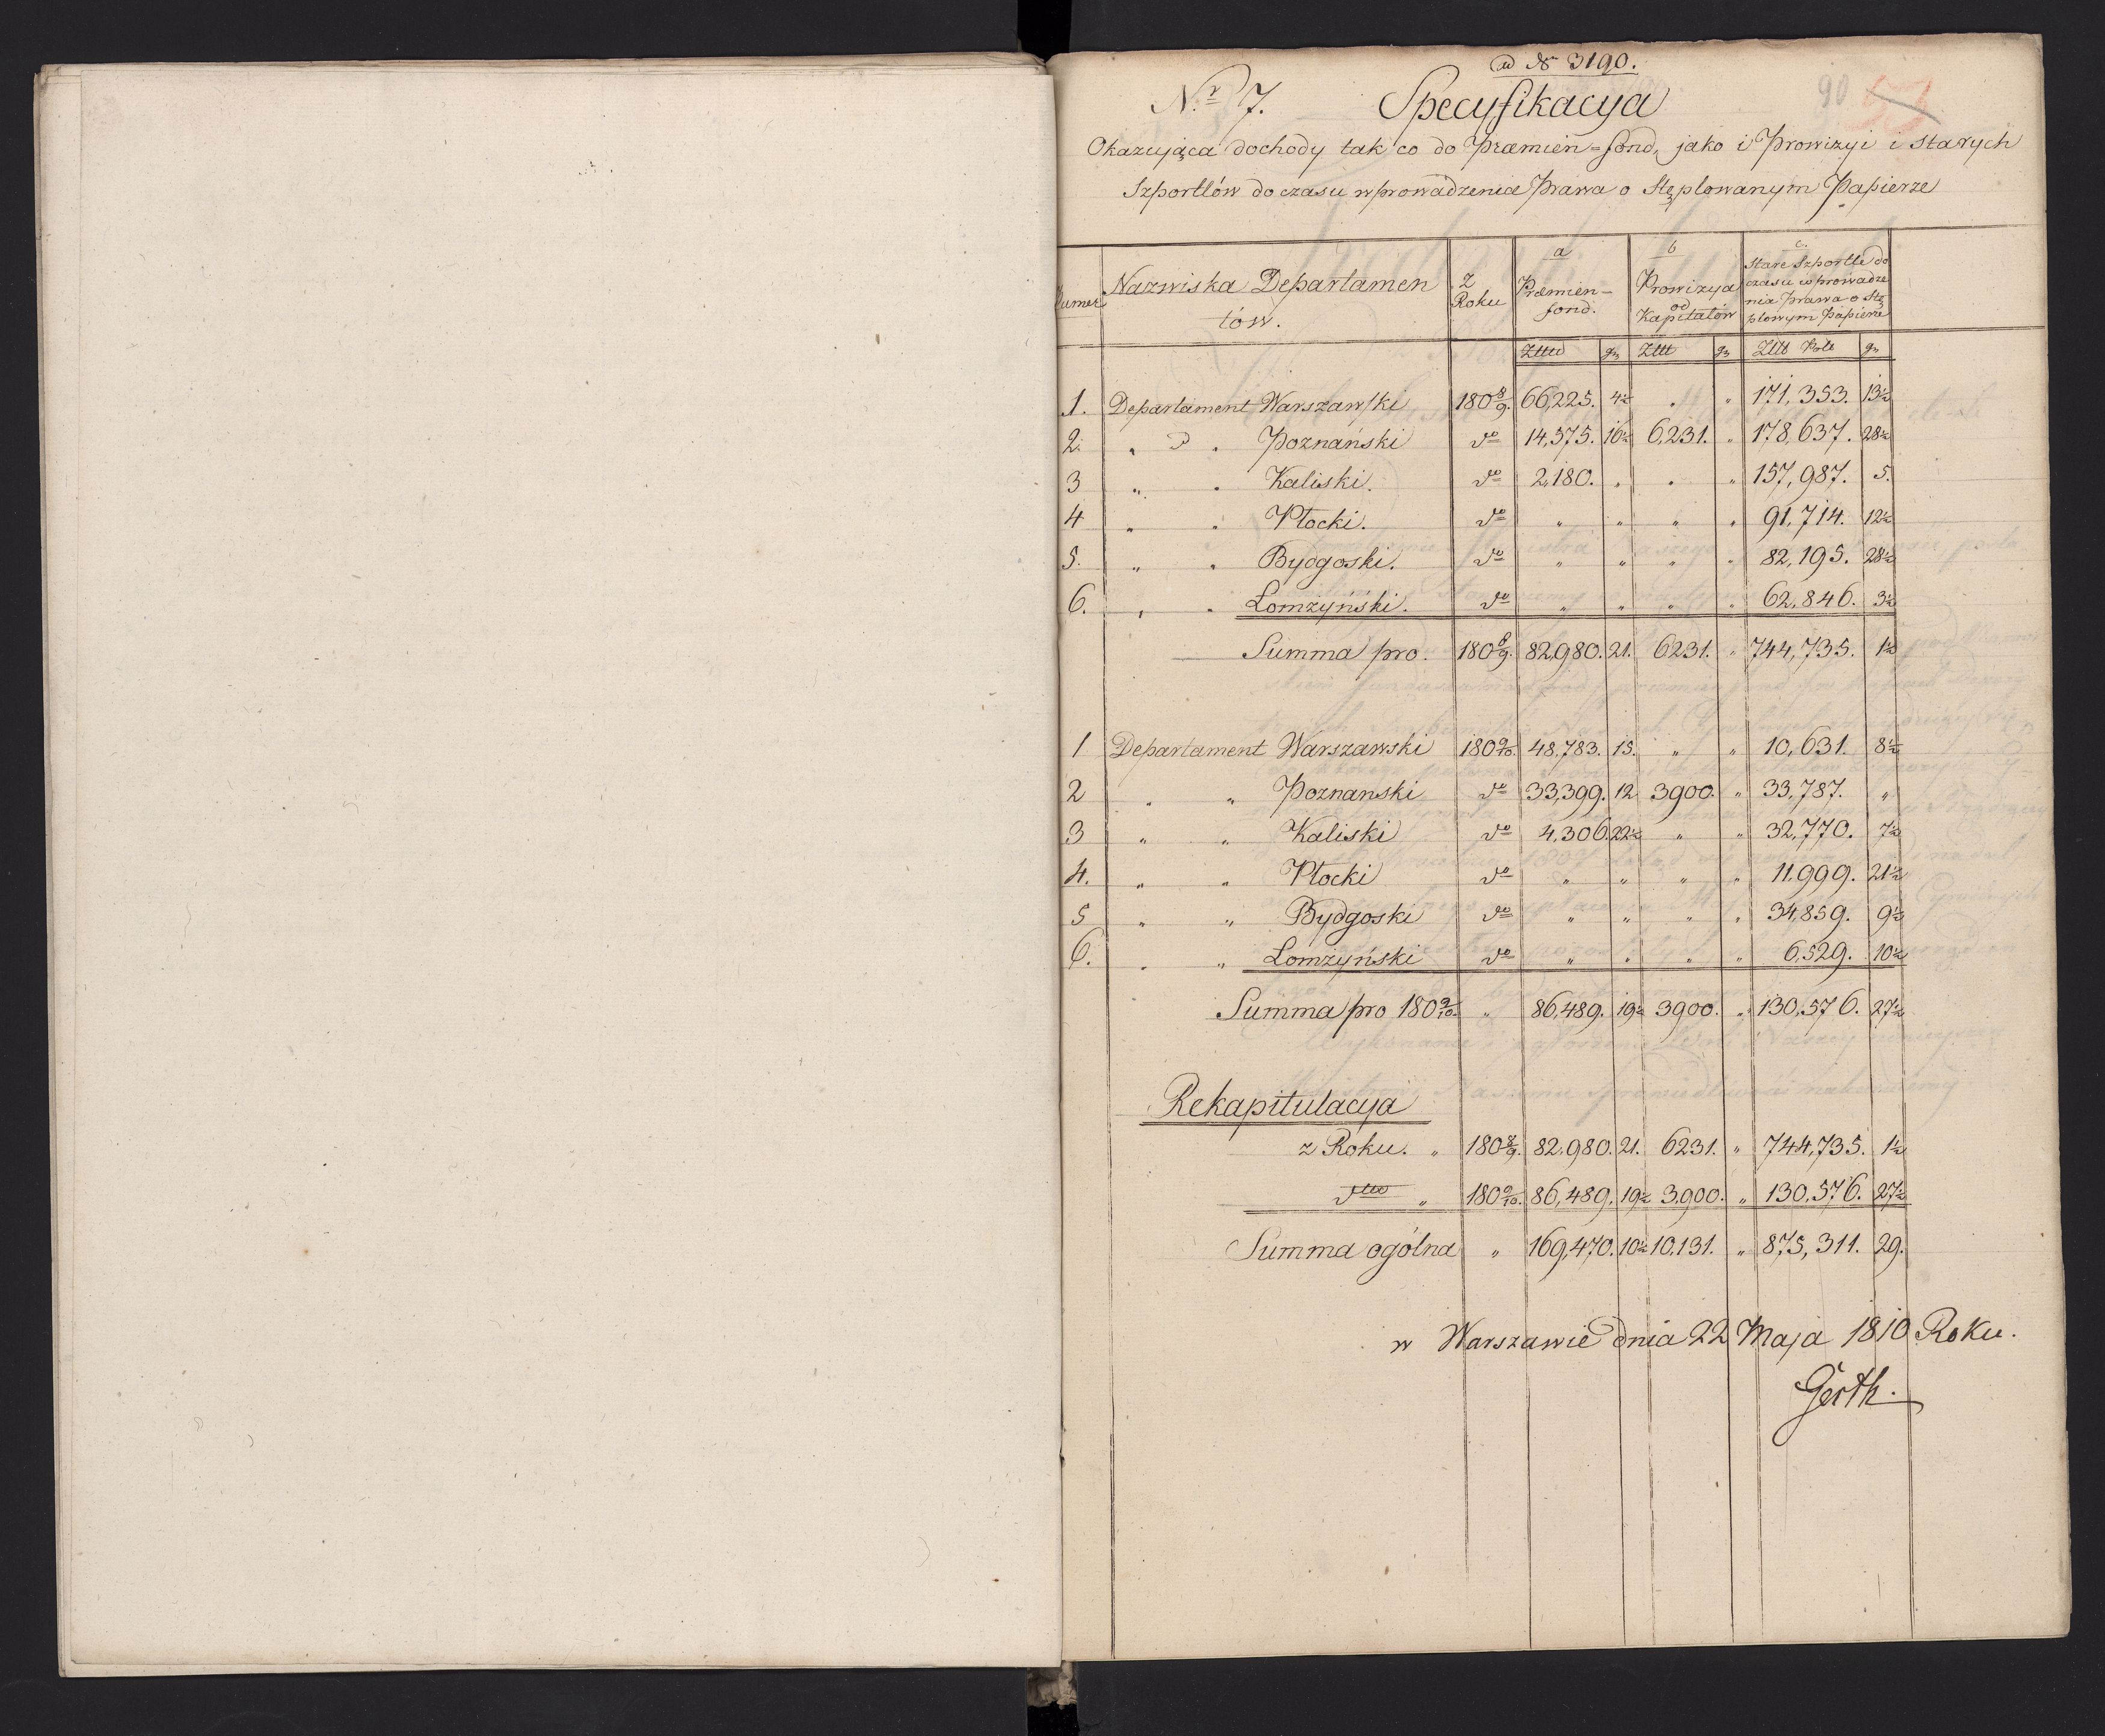 ad N 3190.
Nr. 7. Specyfikacya
90 53
Okazująca dochody tak co do Præmien=fond, jako i Prowizyi i starych
Szportlów do czasu wprowadzenia Prawa o Stęplowanym Papierze
Numer | Nazwiska Departamen tów. | z Roku | a Præmien=fond. | b Prowizya od Kapitałow | c. Stare Szportle do czasu wprowadze nia Prawa o Stę plowym Papierze
Złłł | gr | Złłł | gr | Złłł Pols | gr
1. Departament Warszawski 180 8/9. 66,225. 4½ . " 171,353. 13½
2. " D " Poznański do 14,575. 16½ 6,231. " 178,637. 28½
3 " " Kaliski. do 2,180. " " " 157,987. 5.
4 " " Płocki. do " " " " 91,714. 12½
5. " " Bydgoski. do " " " " 82,195. 28½
6. " " Łomżyński. do " " " " 62,846. 3½
Summa pro. 180 8/9. 82,980. 21. 6231. " 744,735. 1½
1 Departament Warszawski 180 9/10. 48,783. 15. " " 10,631. 8½
2 " " Poznanski do 33,399. 12 3900. " 33,787. "
3 " " Kaliski do 4,306. 22½ " " 32,770. 7½
4. " " Płocki do " " " " 11,999. 21½
5 " " Bydgoski do " " " " 34,859. 9½
6. " " Łomżyński do " " " " 6,529. 10½
Summa pro 180 9/10. " 86,489. 19½ 3900. " 130,576. 27½
Rekapitulacya
z Roku. " 180 8/9. 82,980. 21. 6231. " 744,735. 1½
dtto " 180 9/10. 86,489. 19½ 3,900. " 130,576. 27½
Summa ogólna " 169,470. 10½ 10,131. " 875,311. 29.
w Warszawie dnia 22 Maja 1810 Roku.
Gerth.